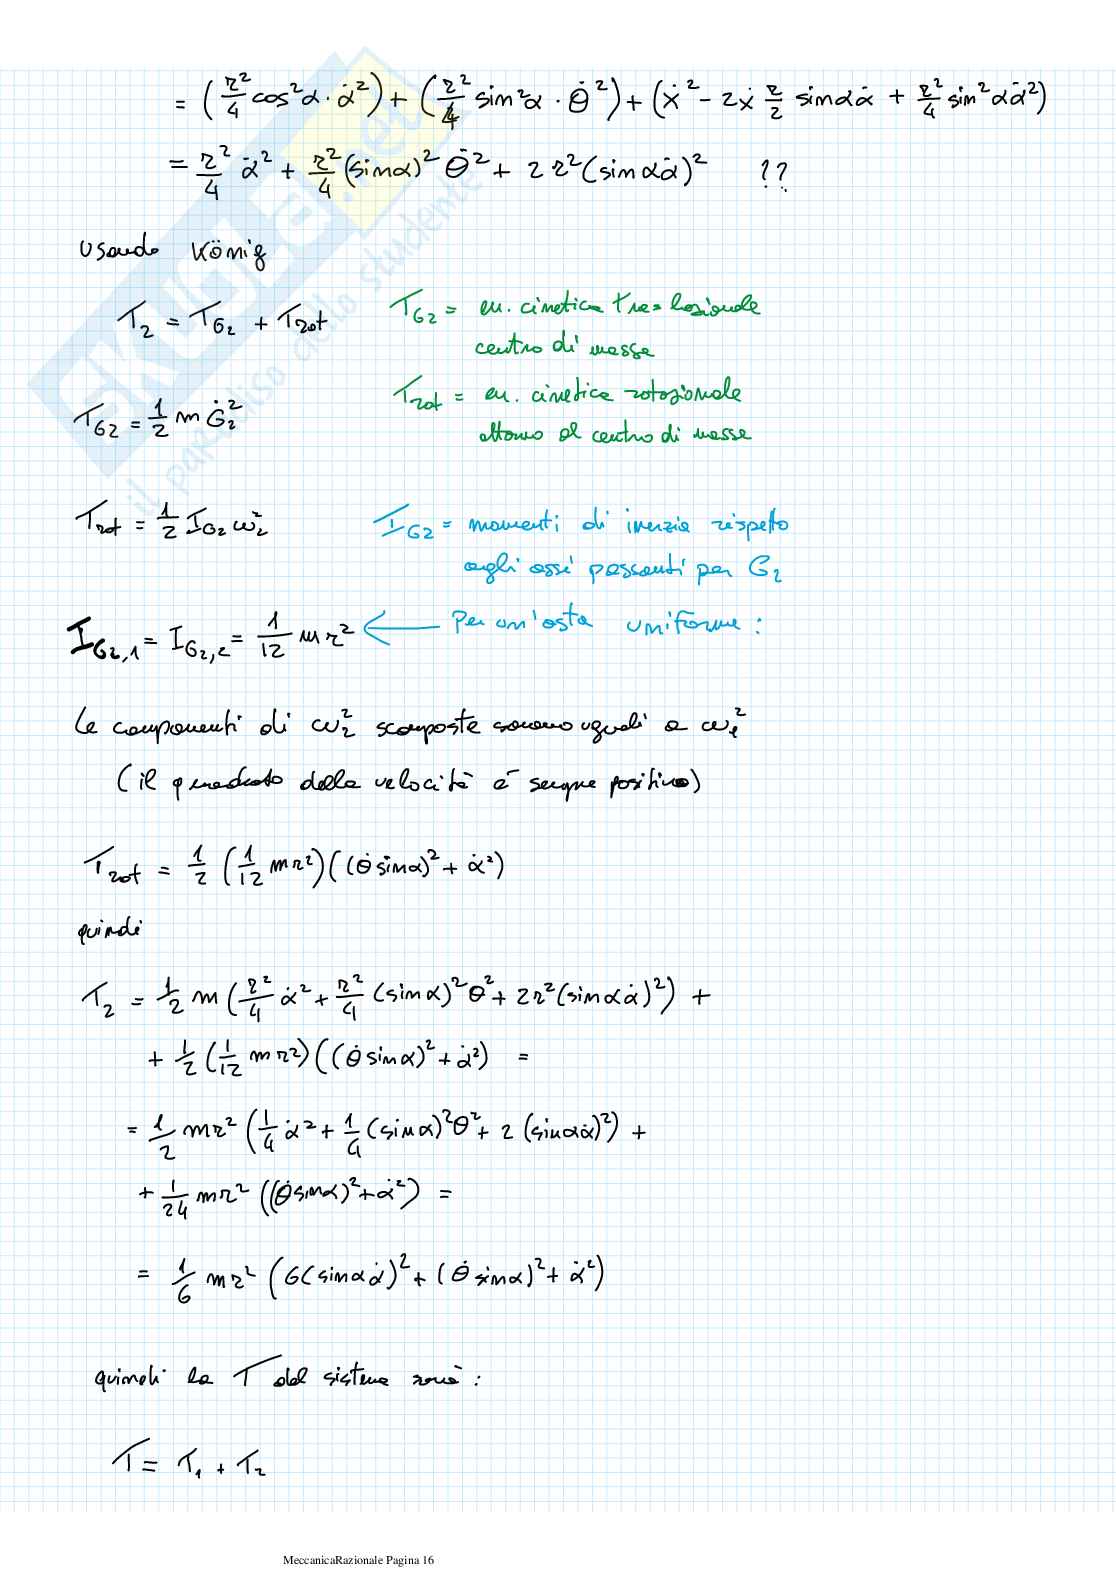 = (r²/4 cos²α · α̇²) + (r²/4 sin²α · θ̇²) + (ẋ² - 2ẋ r/2 sinα α̇ + r²/4 sin²α α̇²)
= r²/4 α̇² + r²/4 (sinα)² θ̇² + 2r²(sinα α̇)² ??
usando König
T₂ = T_G2 + T_rot
T_G2 = en. cinetica traslazionale
centro di massa
T_rot = en. cinetica rotazionale
attorno al centro di massa
T_G2 = 1/2 m Ġ₂²
T_rot = 1/2 I_G2 ω₂²
I_G2 = momenti di inerzia rispetto
agli assi passanti per G₂
I_G2,1 = I_G2,2 = 1/12 m r² ← Per un'asta uniforme:
Le componenti di ω₂² scomposte saranno uguali a ω₁²
(il quadrato della velocità è sempre positivo)
T_rot = 1/2 (1/12 m r²)((θ̇ sinα)² + α̇²)
quindi
T₂ = 1/2 m (r²/4 α̇² + r²/4 (sinα)² θ̇² + 2r²(sinα α̇)²) +
+ 1/2 (1/12 m r²)((θ̇ sinα)² + α̇²) =
= 1/2 m r² (1/4 α̇² + 1/4 (sinα)² θ̇² + 2 (sinα α̇)²) +
+ 1/24 m r² ((θ̇ sinα)² + α̇²) =
= 1/6 m r² (6(sinα α̇)² + (θ̇ sinα)² + α̇²)
quindi la T del sistema sarà:
T = T₁ + T₂
SKUOLA.net
il paradiso dello studente
MeccanicaRazionale Pagina 16